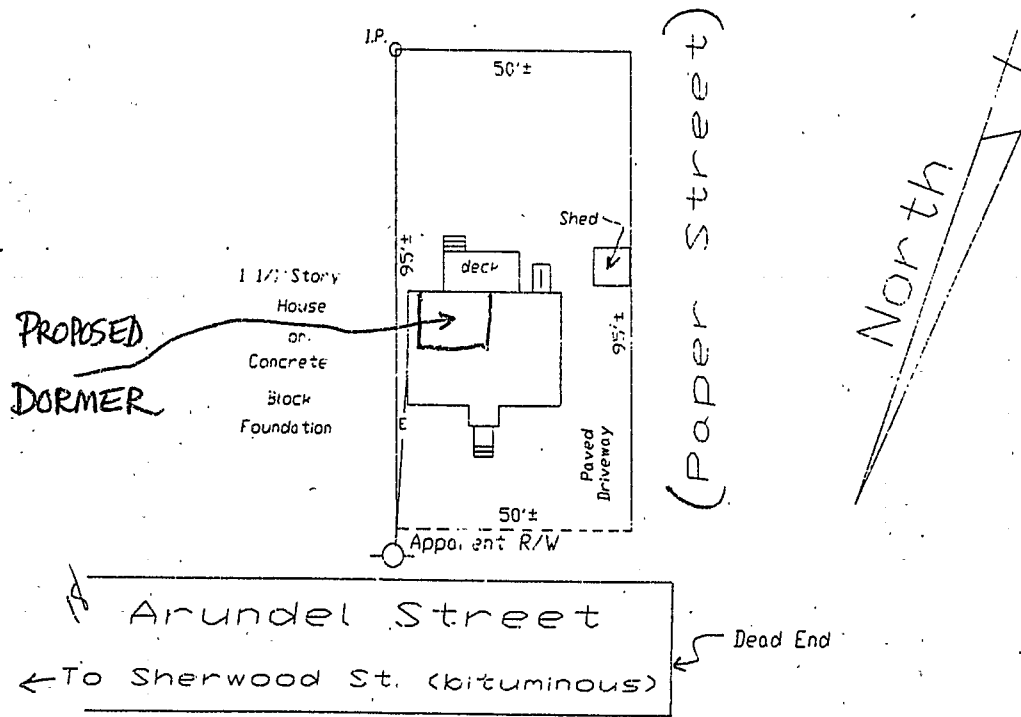 I.P.
50'±
(Paper Street)
North
Shed
95'±
deck
1 1/2 Story
House
on
Concrete
Block
Foundation
95'±
PROPOSED
DORMER
E
Paved
Driveway
50'±
Apparent R/W
Arundel Street
Dead End
←To Sherwood St. (bituminous)